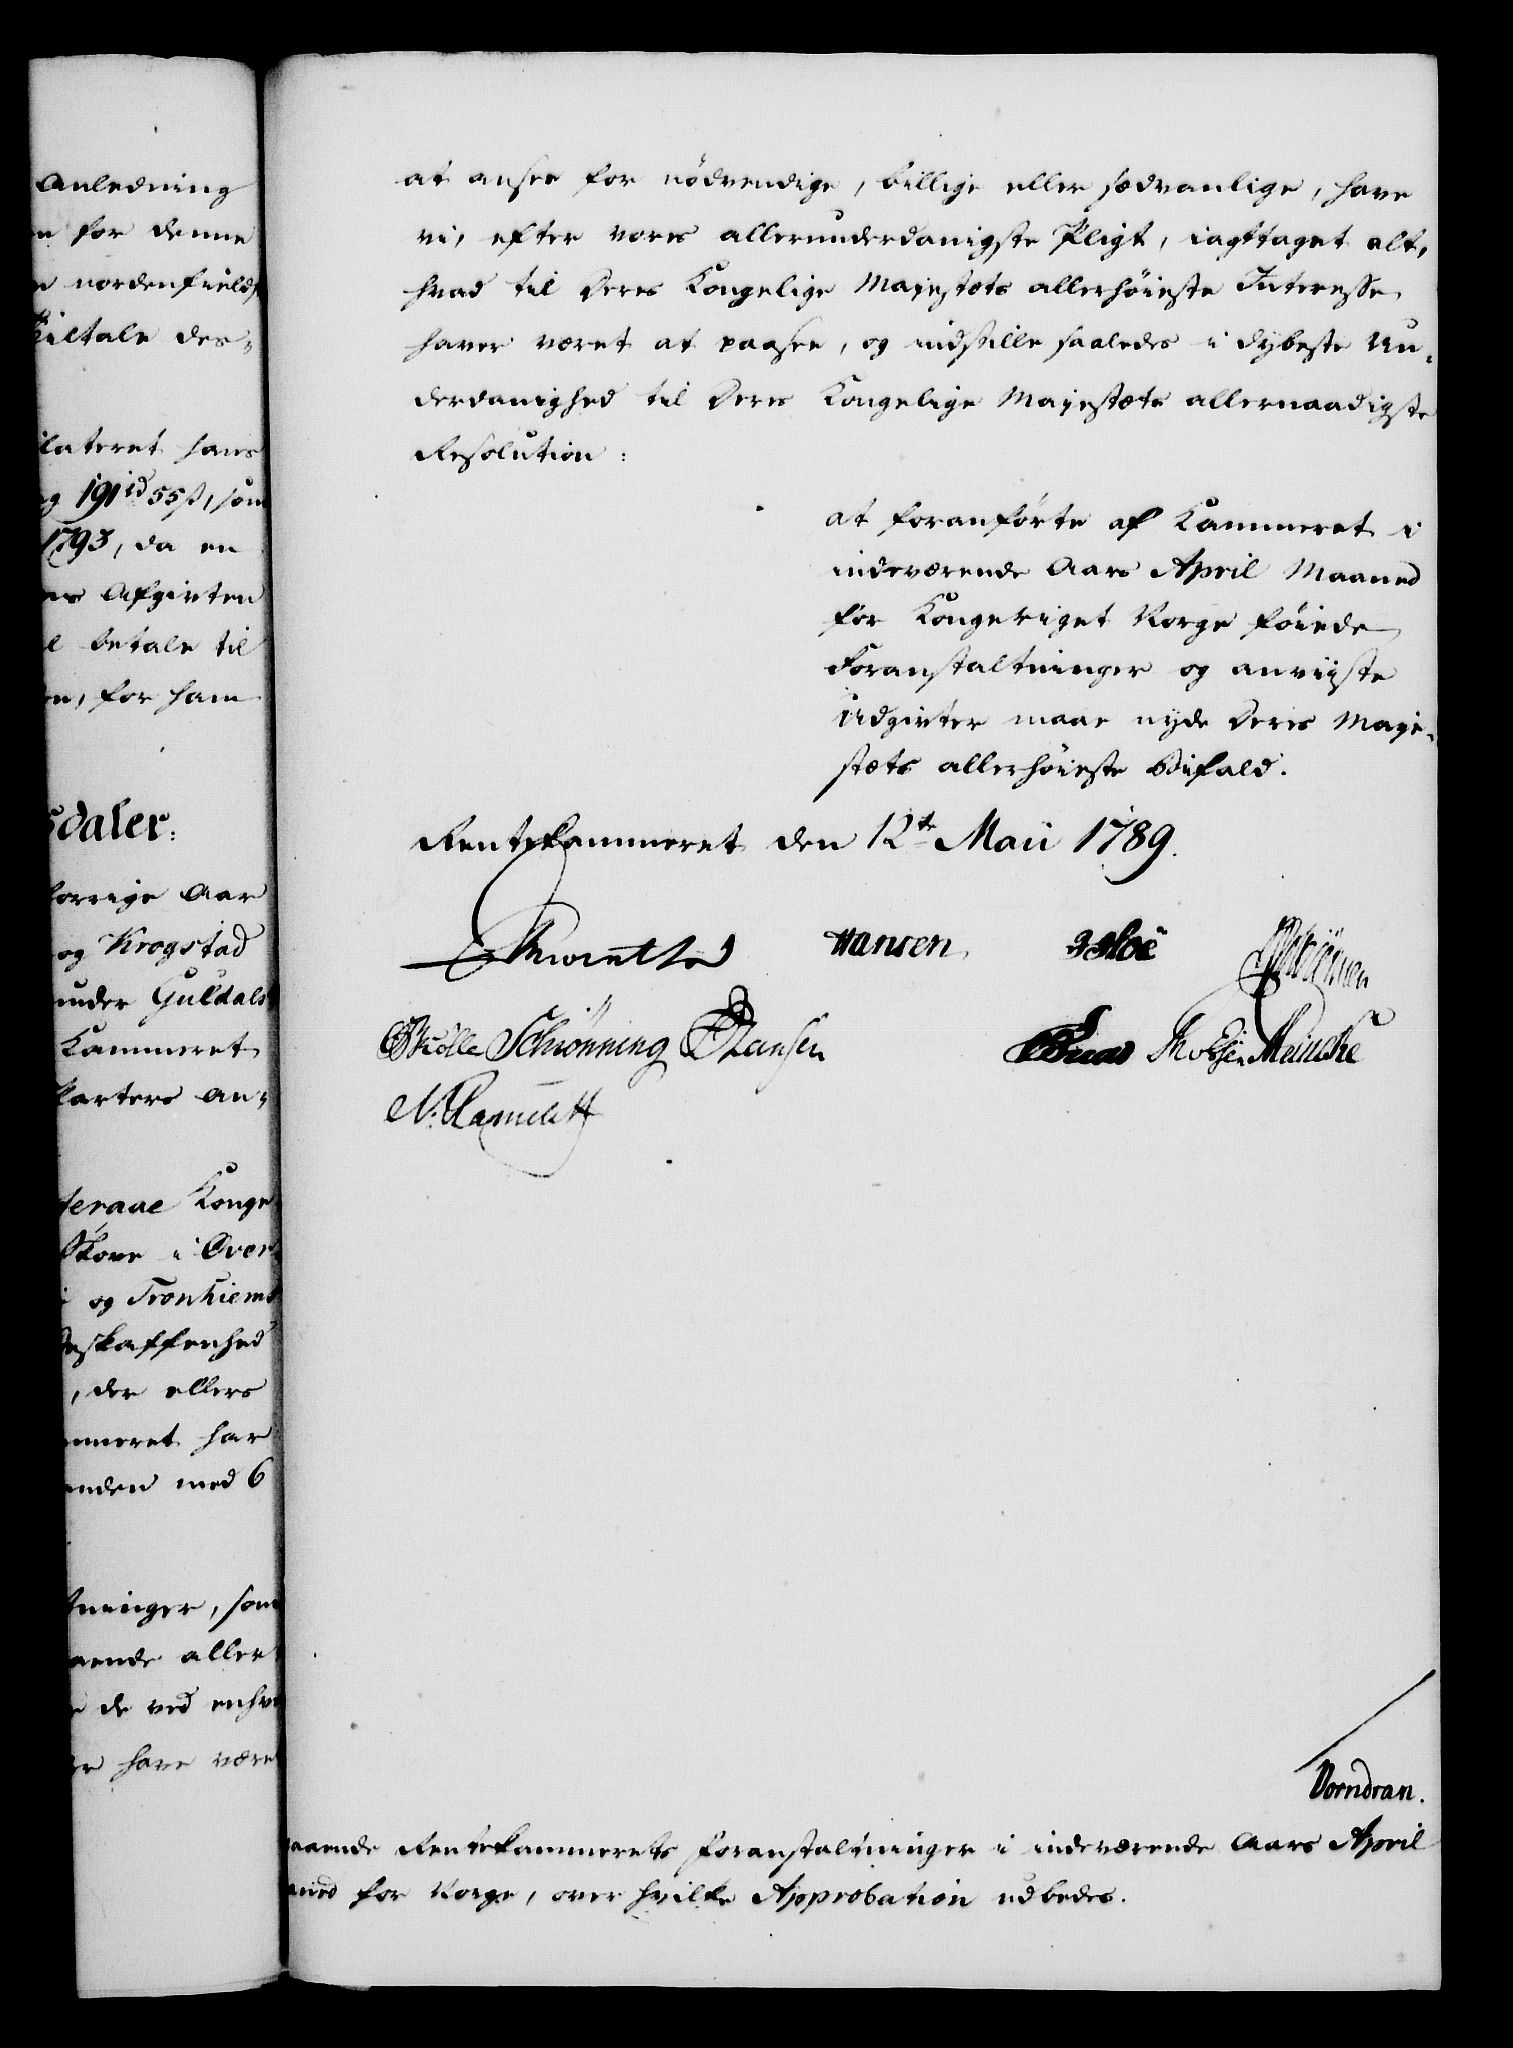 Anledning
for denne
nordenfields
Tiltale des-
hans
191 rd 55 s, som
1793, da en
Afgivten
betale til
for ham
sdaler:
forrige Aar
og Krogstad
under Guldals
Kammeret
an-
Konge
Skove i Over
og Tronhiems
Beskaffenhed
, der ellers
har
med 6
som
aller
de ved enhver
have været
at ansee for nödvendige, billige eller sædvanlige, have
vi, efter vores allerunderdanigste Pligt, iagttaget alt,
hvad til Deres Kongelige Majestæts allerhöieste Interesse
haver været at paasee, og indstille saaledes i dybeste Un-
derdanighed til Deres Kongelige Majestæts allernaadigste
Resolution:
at foranförte af Kammeret i
indeværende Aars April Maaned
for Kongeriget Norge föiede
Foranstaltninger og anviiste
Udgivter maae nyde Deres Maje-
stæts allerhöieste Bifald.
Rentekammeret den 12te Maii 1789.
Hansen
Schiönning Hansen
Meincke
Vorndran.
Rentekammerets Foranstaltninger i indeværende Aars April
for Norge, over hvilke Approbation udbedes.